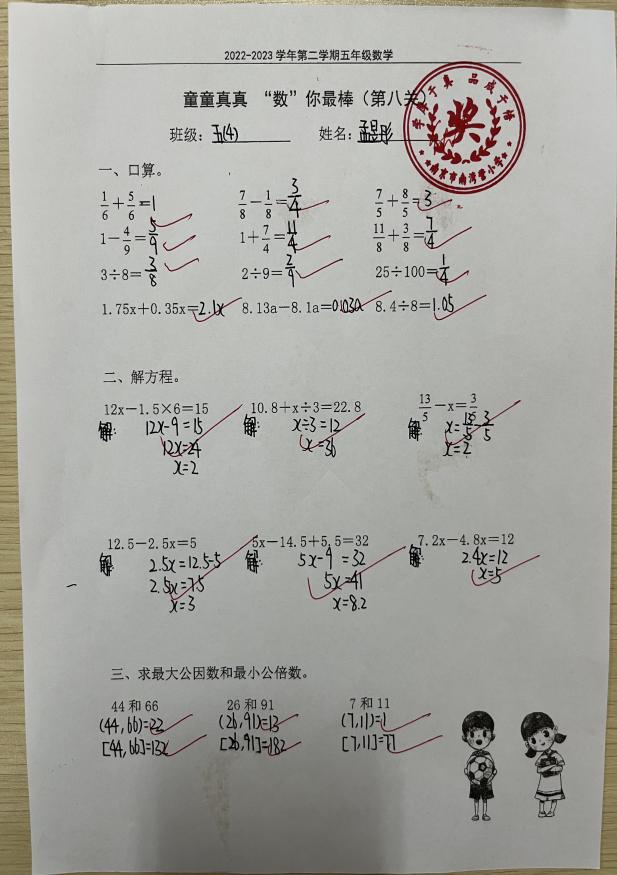 2022-2023 学年第二学期五年级数学
童童真真 “数”你最棒（第八关）
班级：五(4) 姓名：孟昱彤
学库于真 品成于恪
奖
南京市南湾营小学
一、口算。
1/6+5/6=1 7/8-1/8=3/4 7/5+8/5=3
1-4/9=5/9 1+7/4=11/4 11/8+3/8=7/4
3÷8=3/8 2÷9=2/9 25÷100=1/4
1.75x+0.35x=2.1x 8.13a-8.1a=0.03a 8.4÷8=1.05
二、解方程。
12x-1.5×6=15 10.8+x÷3=22.8 13/5-x=3/5
解: 12x-9=15 解: x÷3=12 解: x=13/5-3/5
12x=24 x=36 x=2
x=2
12.5-2.5x=5 5x-14.5+5.5=32 7.2x-4.8x=12
解: 2.5x=12.5-5 解: 5x-9=32 解: 2.4x=12
2.5x=7.5 5x=41 x=5
x=3 x=8.2
三、求最大公因数和最小公倍数。
44 和 66 26 和 91 7 和 11
(44,66)=22 (26,91)=13 (7,11)=1
[44,66]=132 [26,91]=182 [7,11]=77